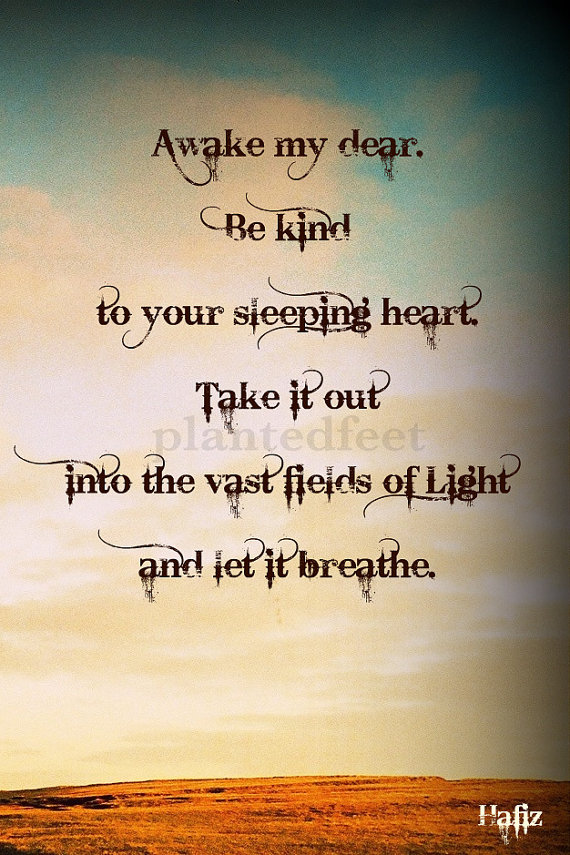 Awake my dear.
Be kind
to your sleeping heart.
Take it out
plantedfeet
into the vast fields of Light
and let it breathe.
Hafiz